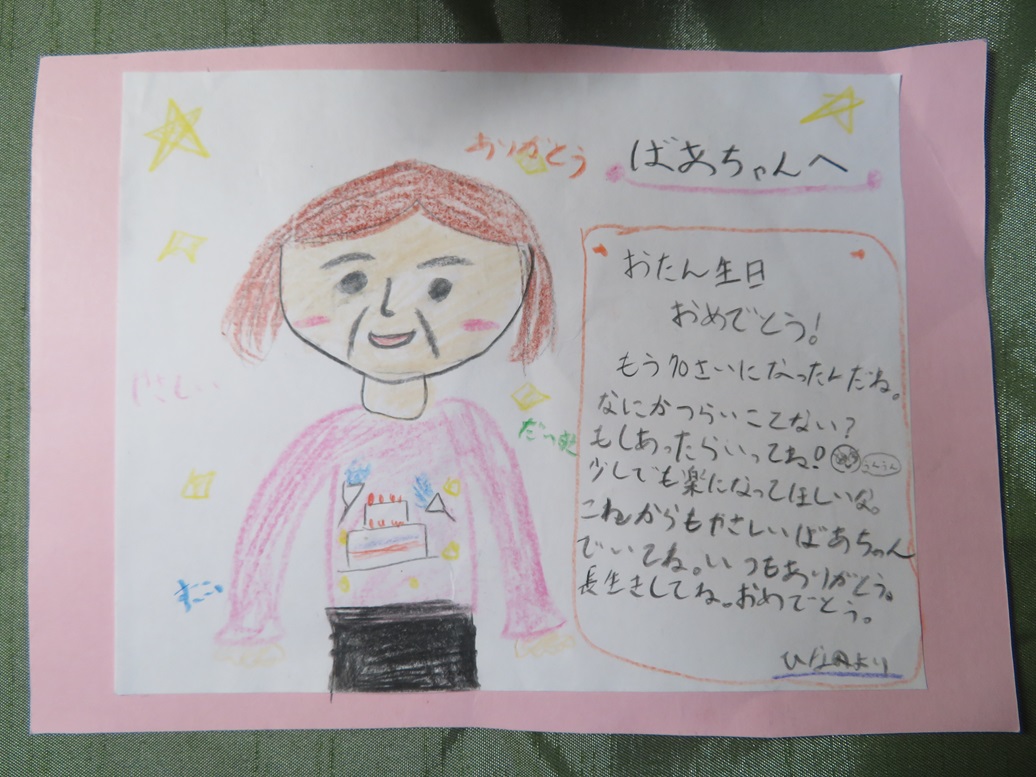 ありがとう
ばあちゃんへ
おたん生日
おめでとう!
もう70さいになったんだね。
なにかつらいことない?
もしあったらいってね! うんうん
少しでも楽になってほしいな。
これからもやさしいばあちゃん
でいてね。いつもありがとう。
長生きしてね。おめでとう。
より
やさしい